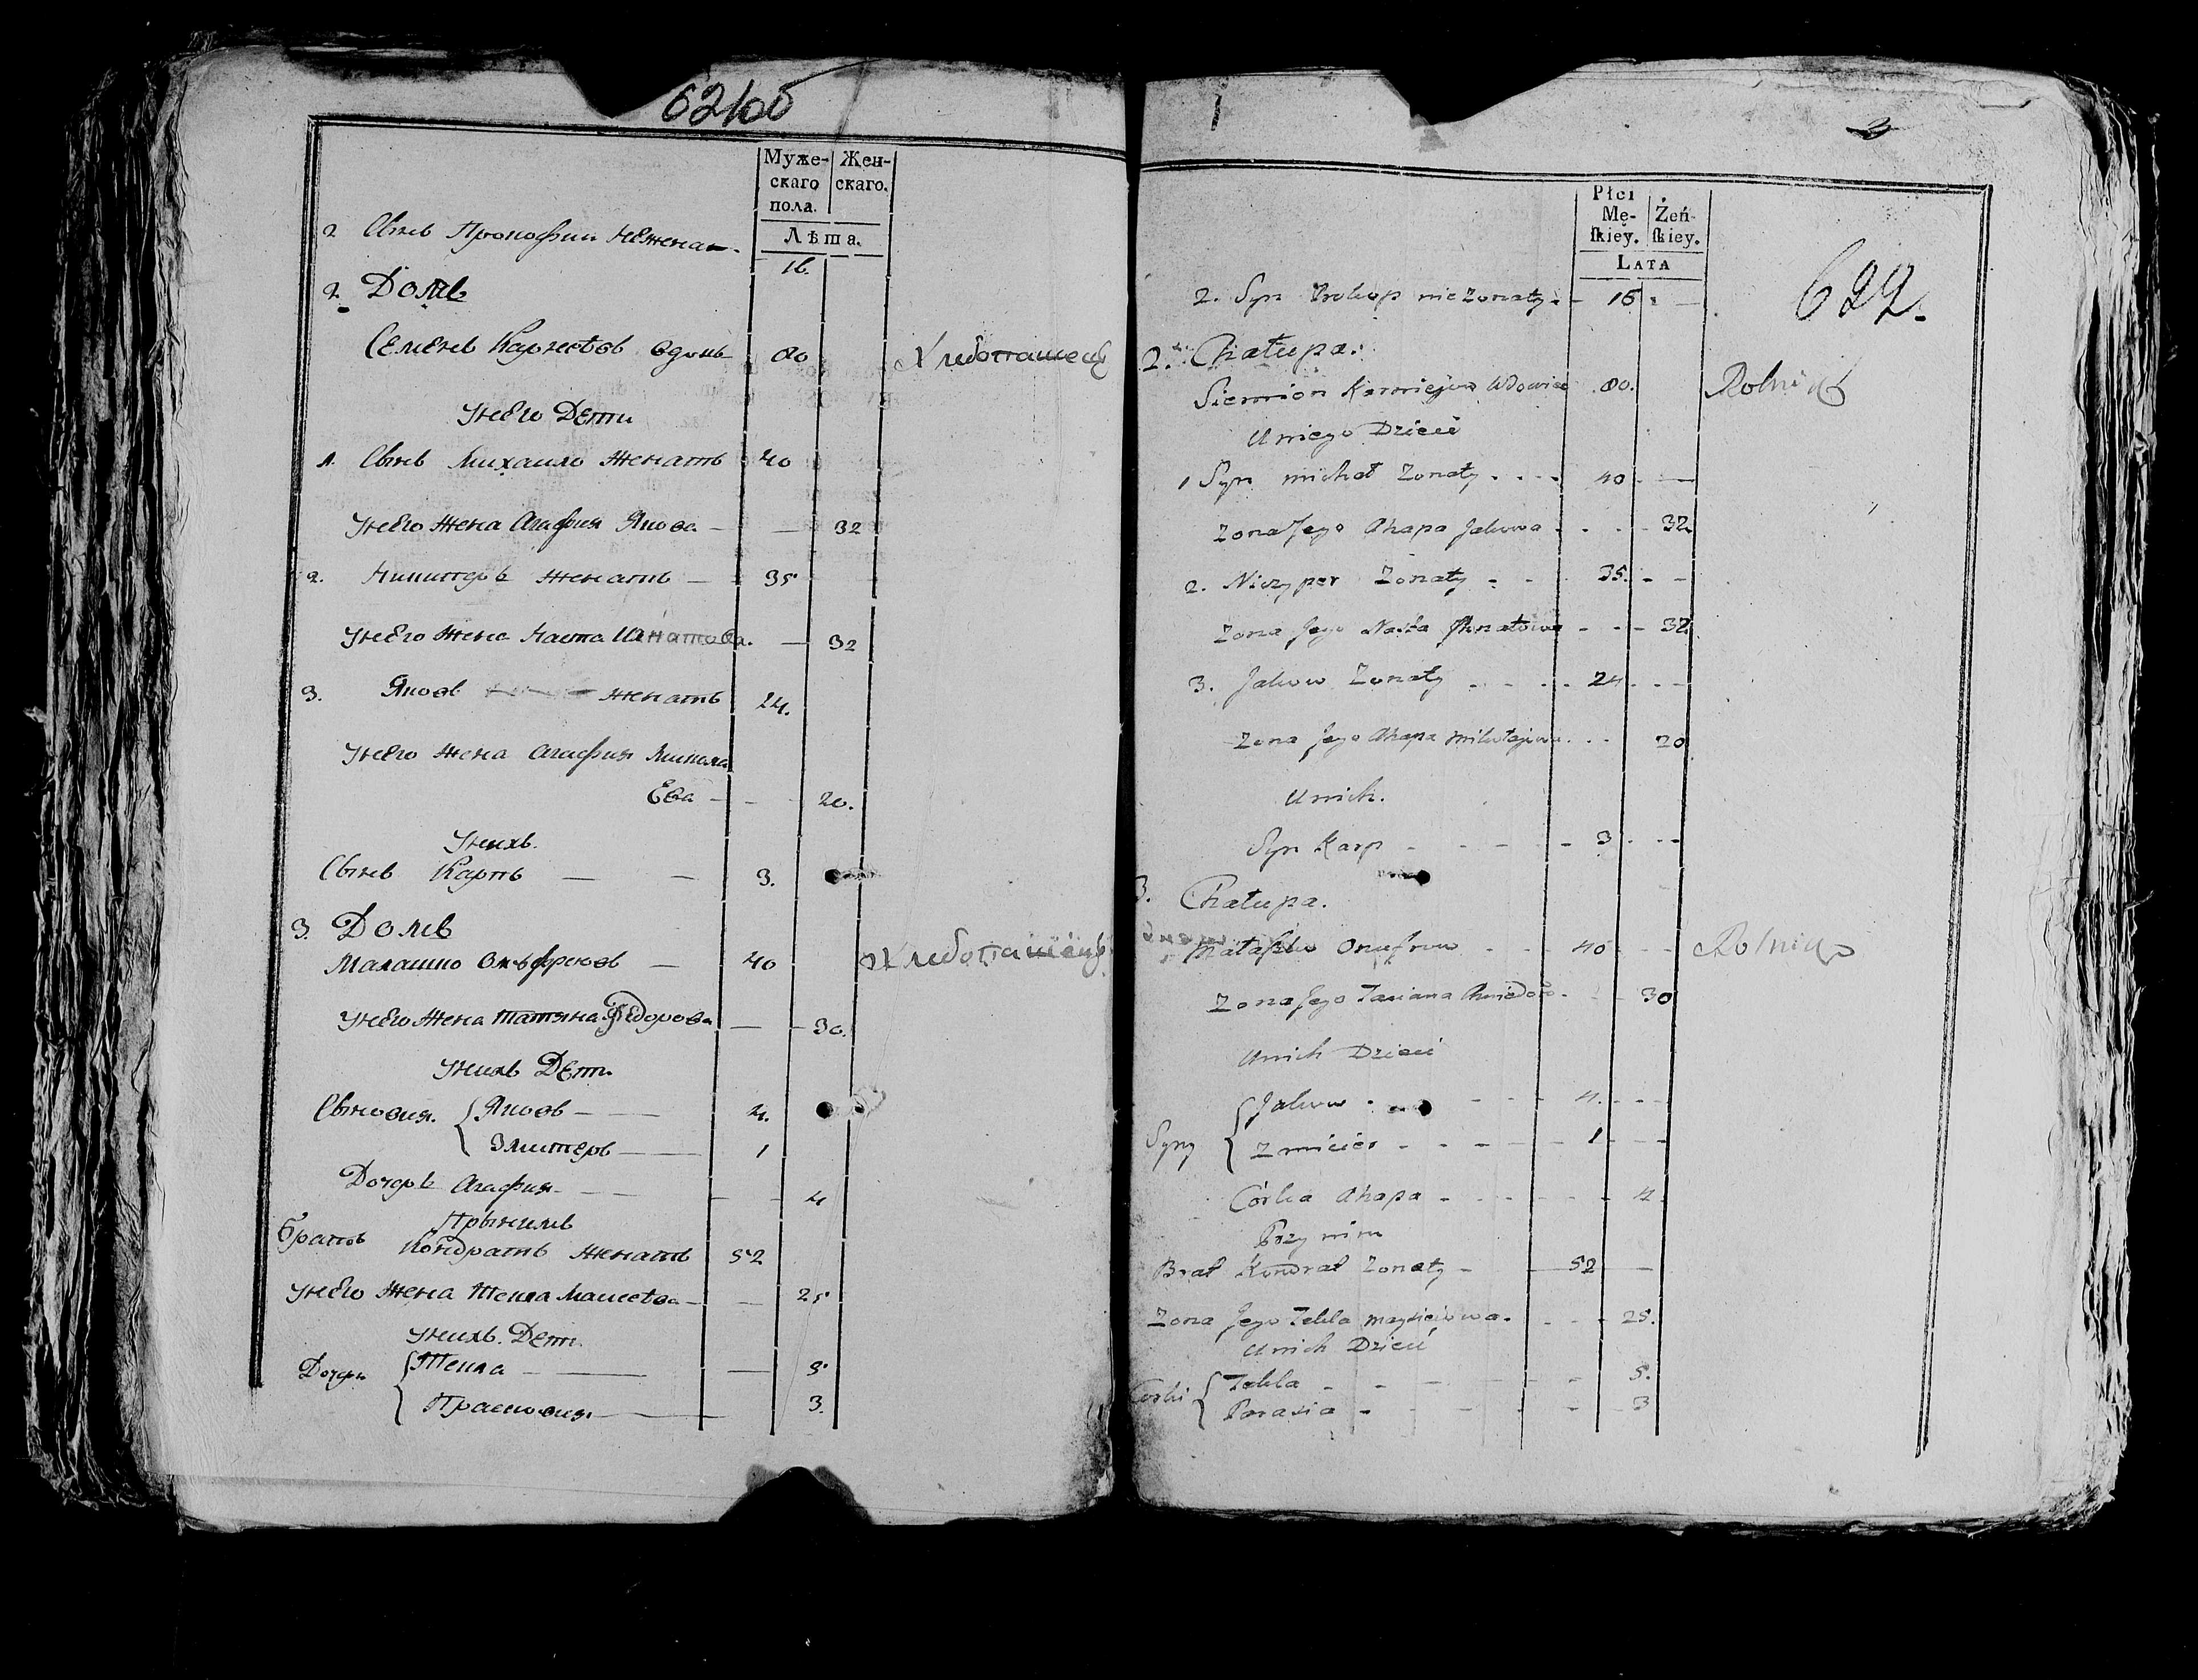 621об
Муже- Жен-
скаго скаго.
пола.
Лѣта.
2 Сынъ Прокофии Неженат 16.
2. Домъ
Семенъ Карнеевъ вдовъ 80 Хлебопашецъ
Унего Дети
1. Сынъ Михаило женатъ 40
Унего жена Агафия Якова — — 32
2. Ничипоръ женатъ — 35
Унего жена Наста Игнатова. — 32
3. Яковъ женатъ 24.
Унего жена Агафия Микола
Ева — - - 20.
Унихъ.
Сынъ Карпъ — — 3.
3. Домъ
Малашко Онъфреювъ — 40 Хлебопашецъ
Унего жена Татяна Федорова — — 30.
Унихъ Дети.
Сыновия. { Яковъ — 4.
Змитеръ — 1
Дочеръ Агафия — — - 4
Прынимъ
Братъ Кондратъ женатъ 52
Унего жена Текла Матеева — — 25
Унихъ. Дети.
Дочери { Текла — — 5
Прасковия — 3.
2
Płci
Mę- Żeń-
ſkiey. ſkiey.
LATA
622.
2. Syn Prokop nie Zonaty. - 16
2. Chałupa.
Siemion Karniejew Wdowiec 80. Rolnik
U niego Dzieci
1 Syn michał Zonaty . . . 40 - —
Zona Jego Ahapa Jakowa . . . - 32
2. Niczyper Zonaty - - 35. - -
Zona Jego Nasta Ihnatowa - - - 32
3. Jakow Zonaty . - - . 24 . - -
Zona Jego Ahapa mikołajewa . . . 20
U nich.
Syn Karp - - - - - 3 . - -
3. Chałupa.
Małaszko Onufrow - - 40 - - Rolnik
Zona Jego Taciana Chwiedoro - - - 30
U nich Dzieci
Syny { Jakow . - - - 4. - - -
Zmicier - - - - - 1 - -
Córka Ahapa - - - - - - 4
Przy nim
Brat Kondrat Zonaty - — 52 —
Zona Jego Tekla mayseiowa. - - - 25.
U nich Dzieci
Corki { Tekla - - - - - 5.
Parasia - - - - - - 3